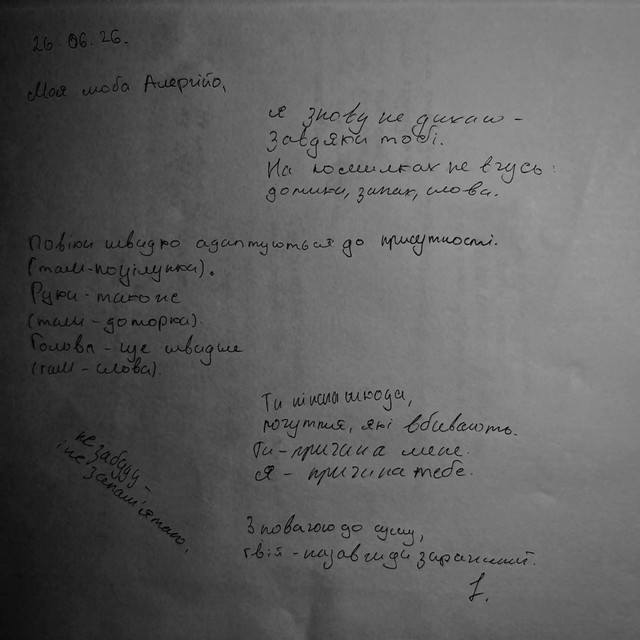 26.06.26.
Моя люба Алергійо,
я знову не дихаю -
завдяки тобі.
На помилках не вчусь:
дотики, запах, слова.
Повіки швидко адаптуються до присутності.
(там - поцілунки).
Руки - також
(там - доторки).
Голова - ще швидше
(там - слова).
Ти кішка шкода,
почуття, які вбивають.
Ти - причина мене.
Я - причина тебе.
не забуду -
і не запам'ятаю.
З повагою до суму,
твій - назавжди заражений.